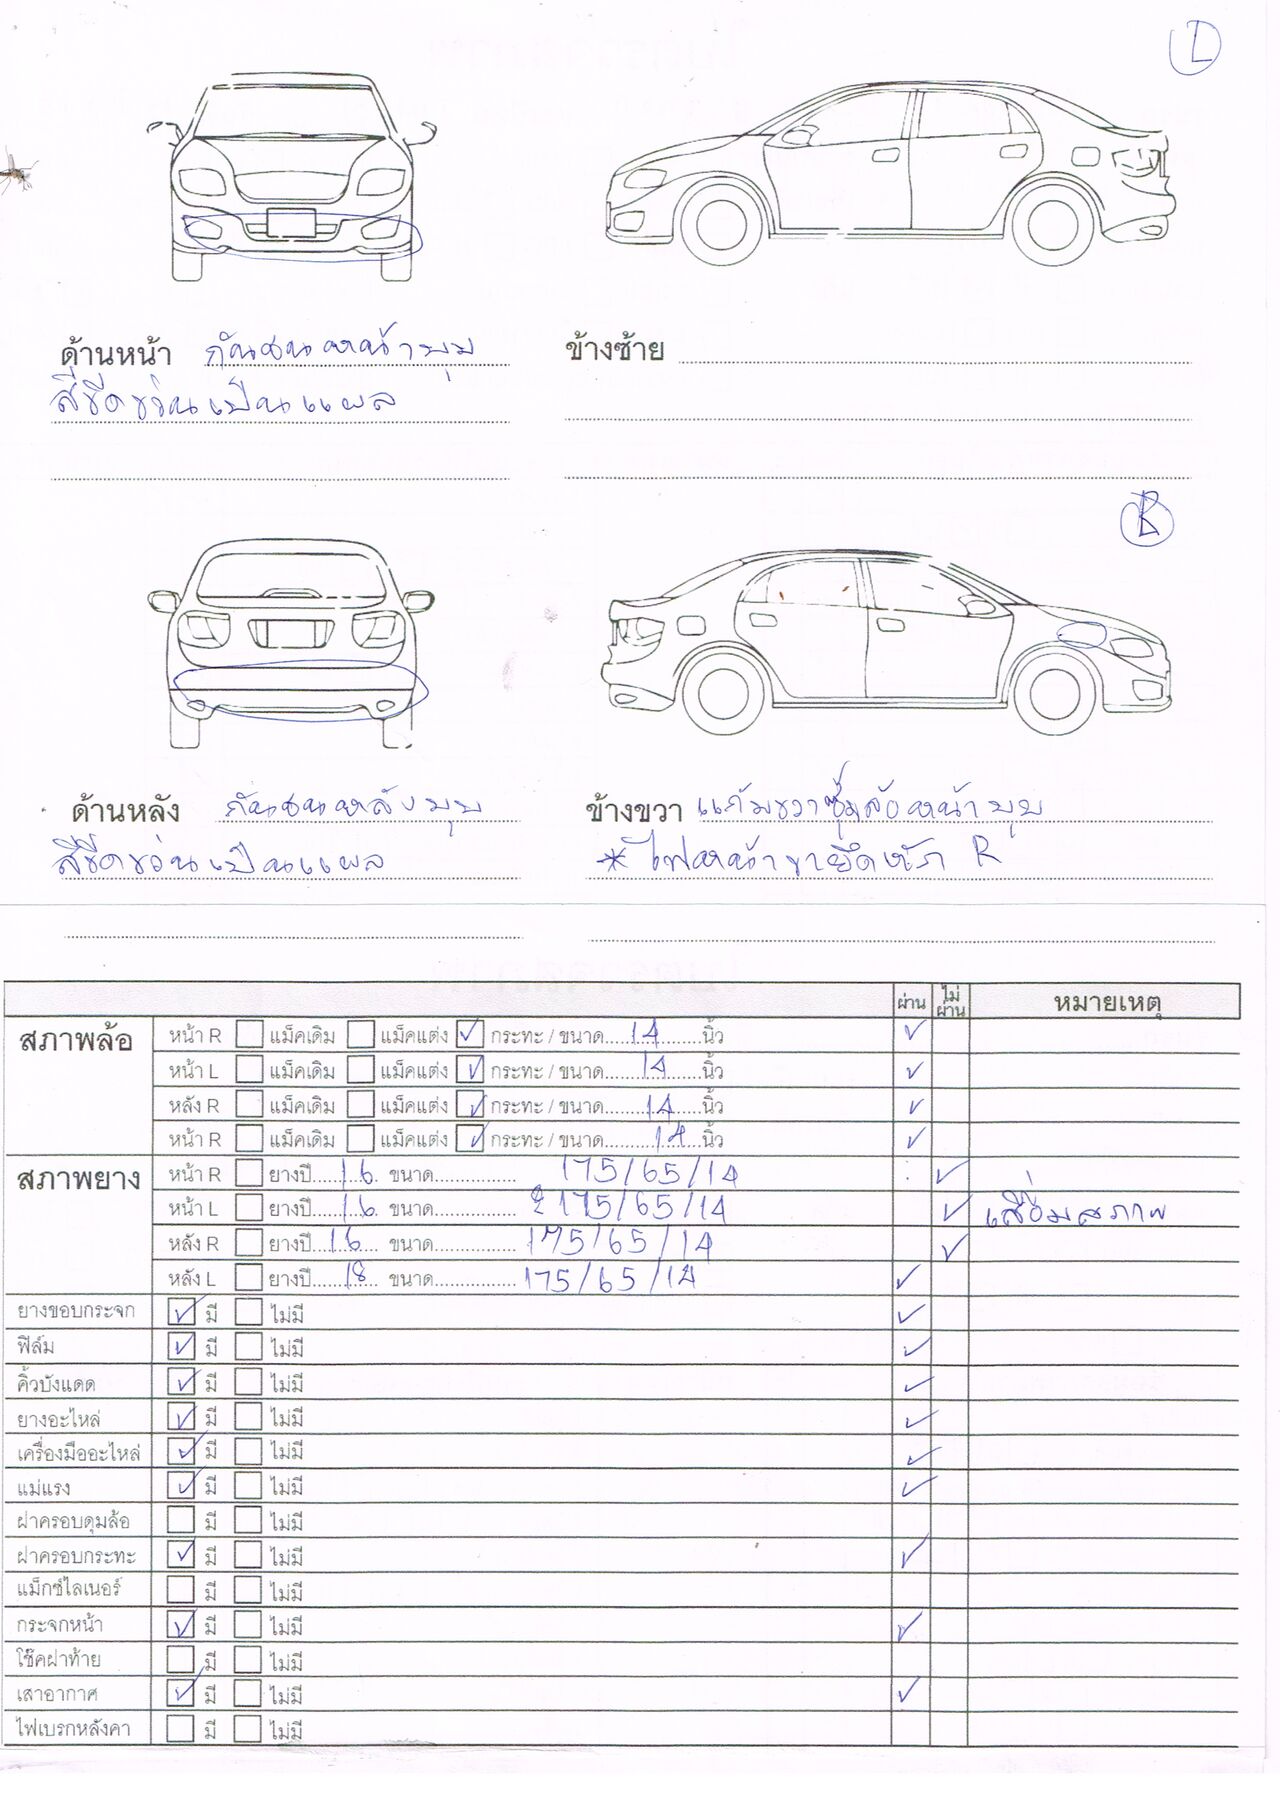 L
ด้านหน้า กันชนหน้าบุบ
สีขีดข่วนเป็นแผล
ข้างซ้าย
R
ด้านหลัง กันชนหลังบุบ
สีขีดข่วนเป็นแผล
ข้างขวา แก้มขวาซุ้มล้อหน้าบุบ
* ไฟหน้าขายึดหัก R
ผ่าน ไม่ผ่าน หมายเหตุ
สภาพล้อ หน้า R แม็คเดิม แม็คแต่ง ✓ กระทะ / ขนาด.....14.....นิ้ว ✓
หน้า L แม็คเดิม แม็คแต่ง ✓ กระทะ / ขนาด.....14.....นิ้ว ✓
หลัง R แม็คเดิม แม็คแต่ง ✓ กระทะ / ขนาด.....14.....นิ้ว ✓
หน้า R แม็คเดิม แม็คแต่ง ✓ กระทะ / ขนาด.....14.....นิ้ว ✓
สภาพยาง หน้า R ยางปี.....16.. ขนาด............... 175/65/14 ✓
หน้า L ยางปี.....16.. ขนาด............... 175/65/14 ✓ เสื่อมสภาพ
หลัง R ยางปี...16..... ขนาด............... 175/65/14 ✓
หลัง L ยางปี.....18..... ขนาด............... 175/65/14 ✓
ยางขอบกระจก ✓ มี ไม่มี ✓
ฟิล์ม ✓ มี ไม่มี ✓
คิ้วบังแดด ✓ มี ไม่มี ✓
ยางอะไหล่ ✓ มี ไม่มี ✓
เครื่องมืออะไหล่ ✓ มี ไม่มี ✓
แม่แรง ✓ มี ไม่มี ✓
ฝาครอบดุมล้อ มี ไม่มี
ฝาครอบกระทะ ✓ มี ไม่มี ✓
แม็กซ์ไลเนอร์ มี ไม่มี
กระจกหน้า ✓ มี ไม่มี ✓
โช๊คฝาท้าย มี ไม่มี
เสาอากาศ ✓ มี ไม่มี ✓
ไฟเบรกหลังคา มี ไม่มี